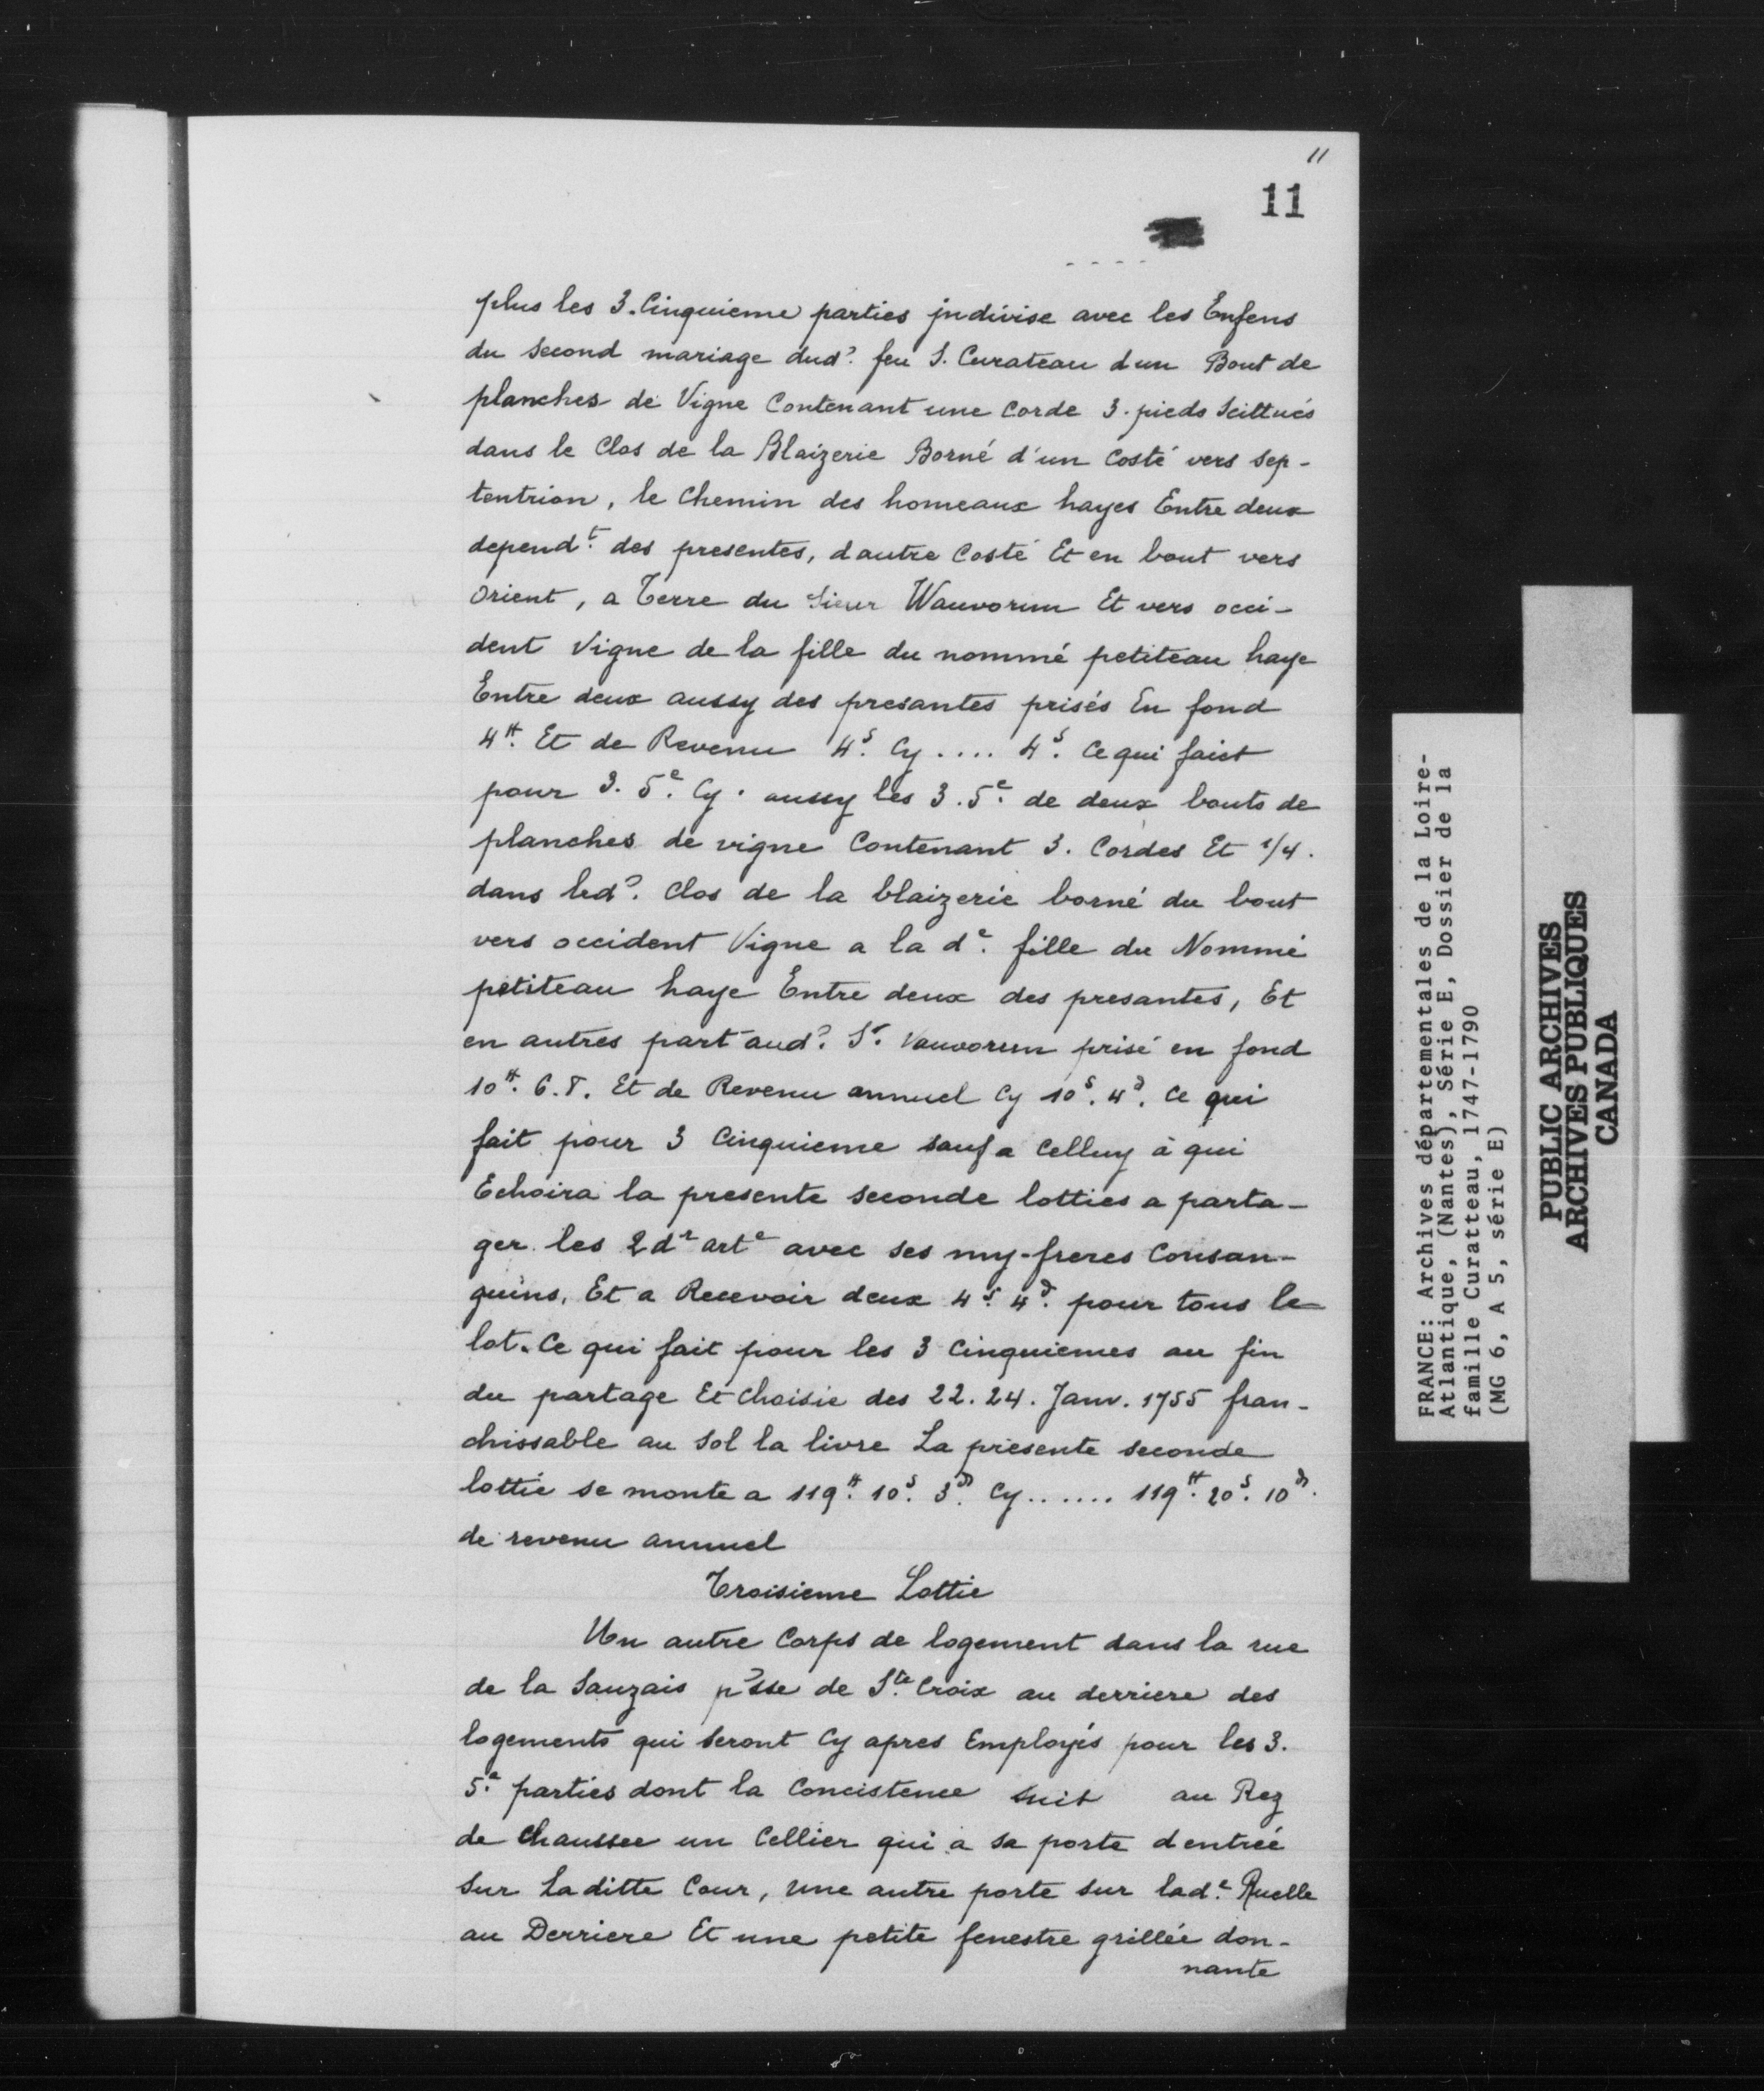 11
11
plus les 3. Cinquieme parties jndivise avec les Enfens
du second mariage dud? feu S. Curateau dun Bout de
planches de Vigne Contenant une Corde 3. pieds Scittués
dans le Clos de la Blaizerie Borné d'un Costé vers sep-
tentrion, le Chemin des homeaux hayes Entre deux
depend.t des presentes, dautre Costé Et en bout vers
Orient, a Terre du Sieur Wauvorun Et vers occi-
dent Vigne de la fille du nommé petiteau haye
Entre deux aussy des presantes prisés En fond
4tt. Et de Revenu 4s. Cy .... 4s. Ce qui faict
pour 3. 5e. Cy. aussy les 3. 5e. de deux bouts de
planches de vigne Contenant 3. Cordes Et 1/4.
dans led?. Clos de la blaizerie borné du bout
vers occident Vigne a la de. fille du Nommé
petiteau haye Entre deux des presantes, Et
en autres part aud?. Sr. Vauvorun prisé en fond
10tt. 6. 8. Et de Revenu annuel Cy 10s. 4d. Ce qui
fait pour 3 Cinquieme sauf a Celluy à qui
Echoira la presente seconde lotties a parta-
ger les 2 dr arte avec ses my-freres Consan-
guins, Et a Recevoir deux 4s. 4d. pour tous le
lot. Ce qui fait pour les 3 Cinquiemes au fin
du partage Et Choisie des 22. 24. Janv. 1755 fran-
chissable au Sol la livre La présente seconde
lottie se monte a 119tt. 10s. 3d. Cy ...... 119tt. 20s. 10d.
de revenu annuel
Troisieme Lottie
Un autre Corps de logement dans la rue
de la Sauzais p?sse de Ste. Croix au derriere des
logements qui seront Cy apres Employés pour les 3.
5.e parties dont la Concistence suit au Rez
de Chaussee un Cellier qui a sa porte dentrée
Sur Laditte Cour, Une autre porte sur lad.e Ruelle
au Derriere Et une petite fenestre grillée don-
nante
FRANCE: Archives départementales de la Loire-
Atlantique, (Nantes), Série E, Dossier de la
famille Curatteau, 1747-1790
(MG 6, A 5, série E)
PUBLIC ARCHIVES
ARCHIVES PUBLIQUES
CANADA